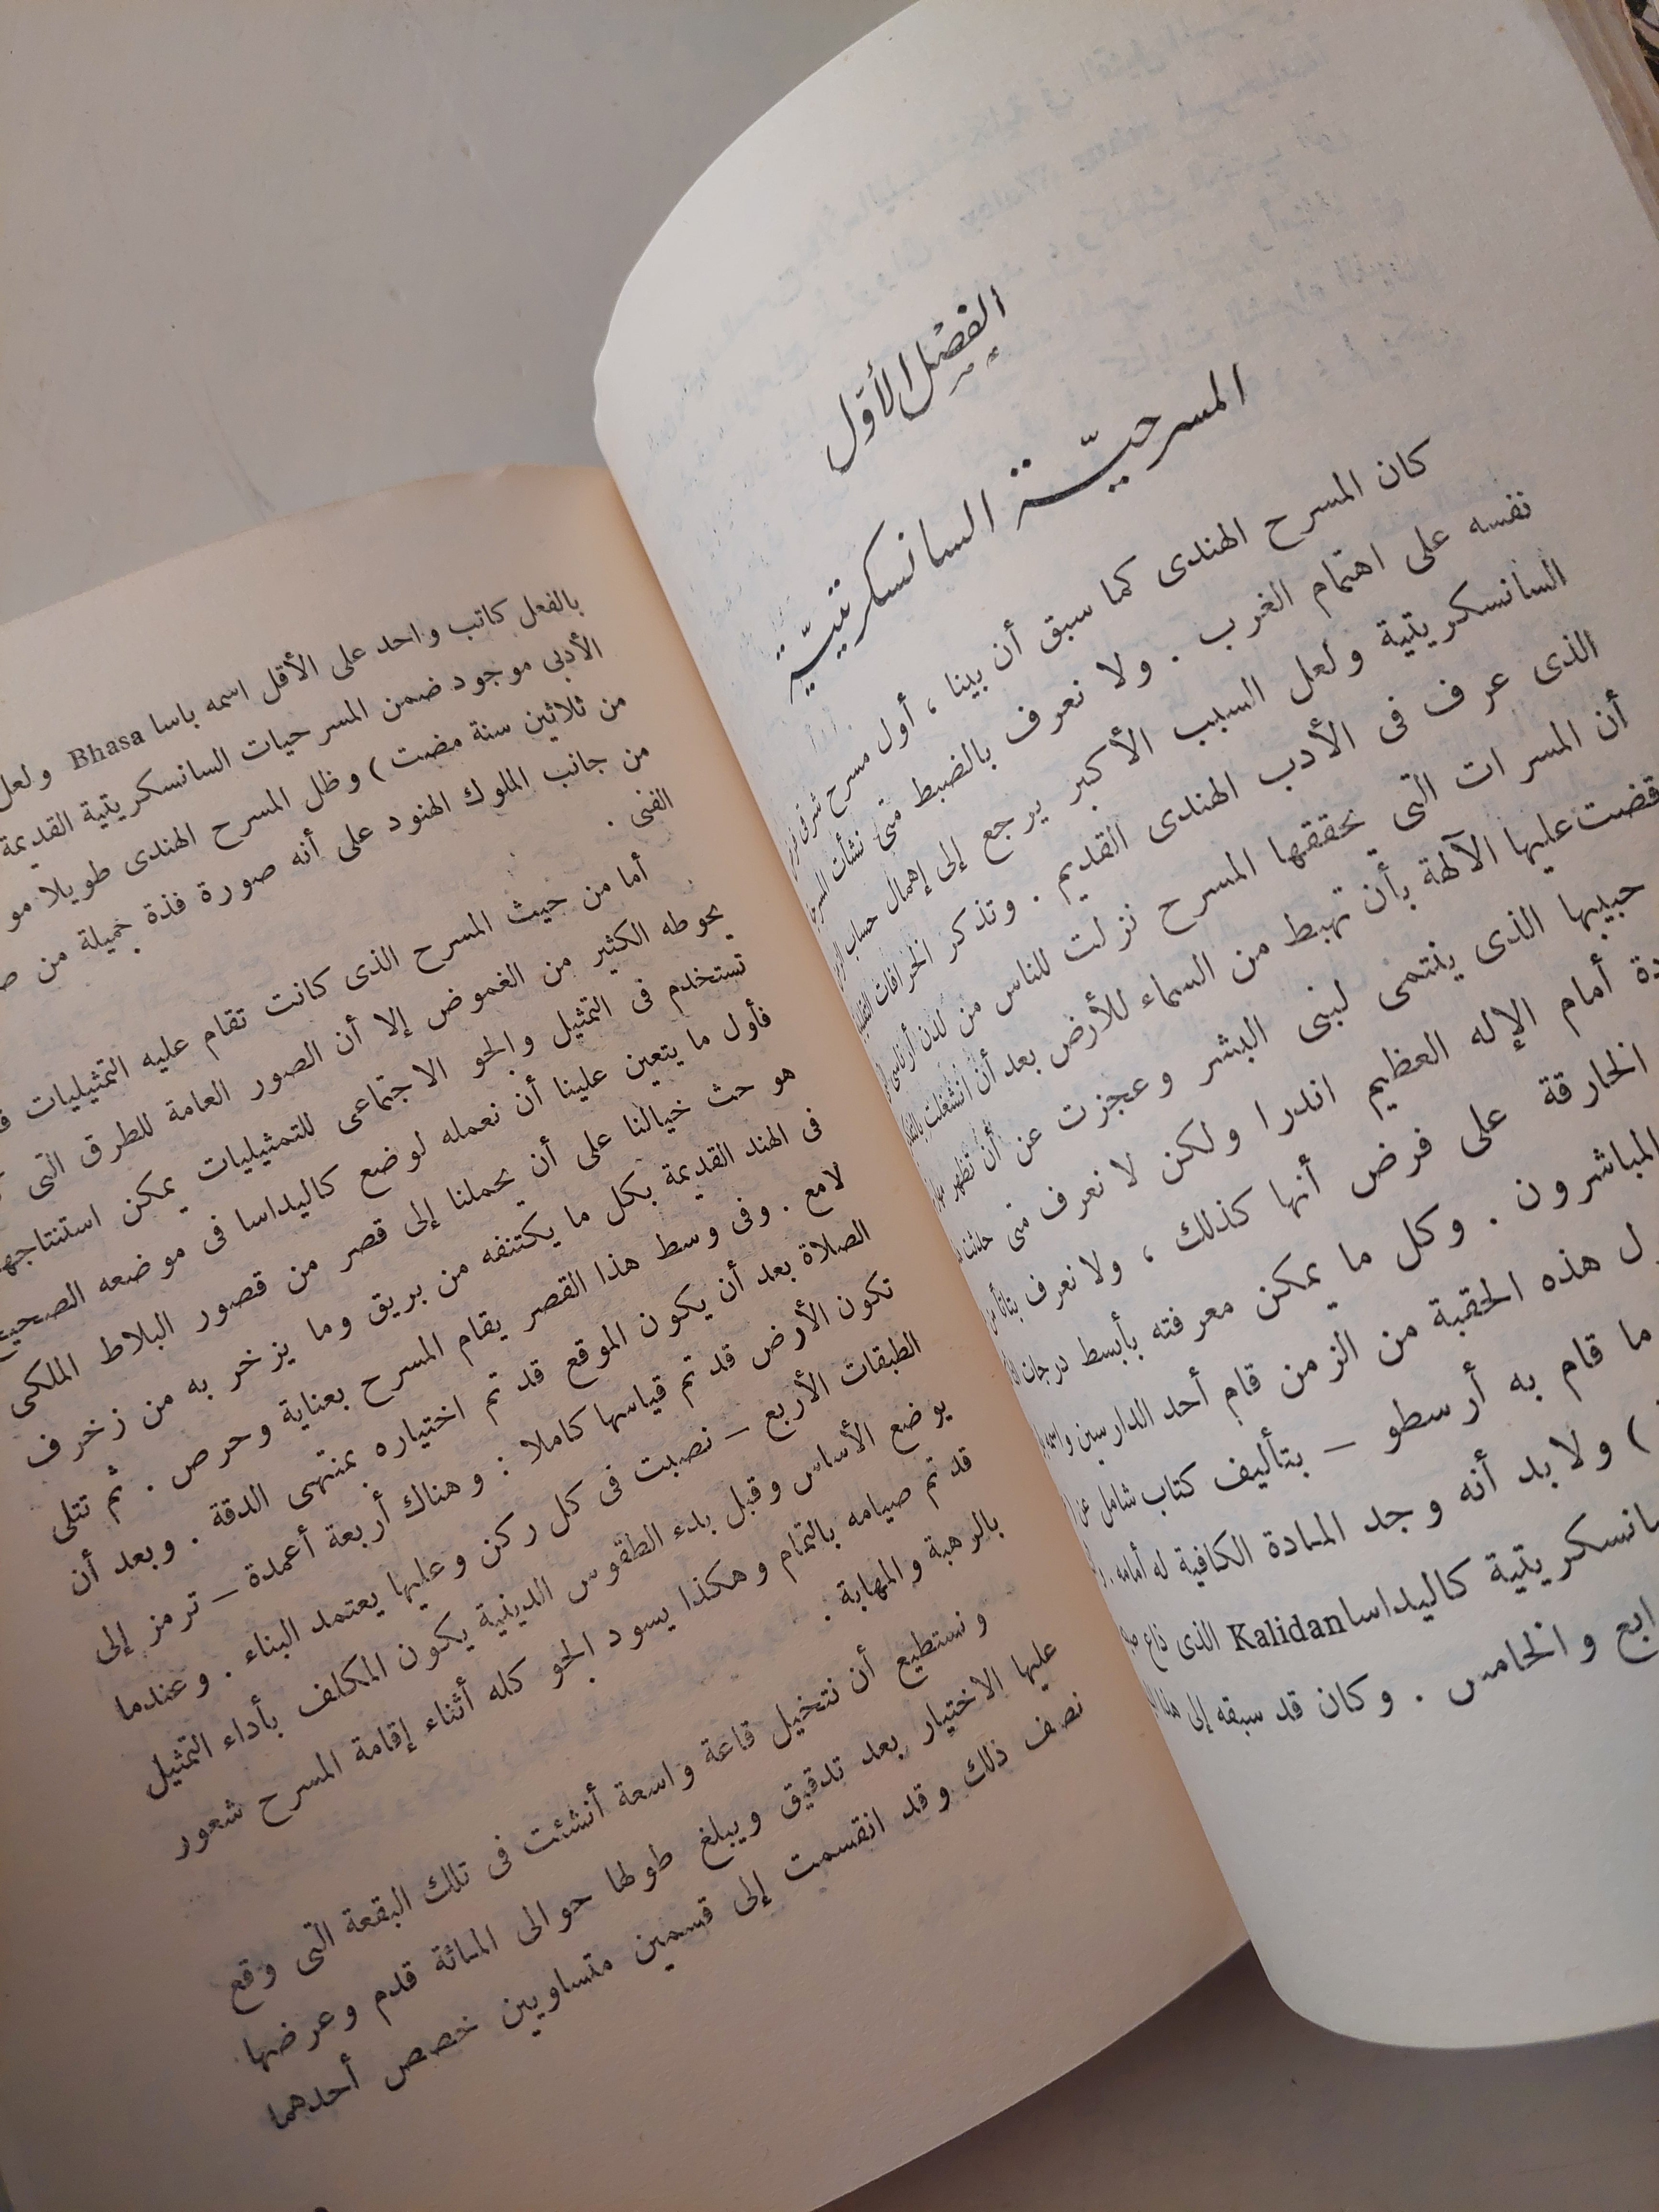 الفصل الأول
المسرحية السانسكريتية
كان المسرح الهندى كما سبق أن بينا ، أول مسرح شرقى فرض
نفسه على اهتمام الغرب . ولا نعرف بالضبط متى نشأت
السانسكريتية ولعل السبب الأكبر يرجع إلى إهمال حساب الزمن
الذى عرف فى الأدب الهندى القديم . وتذكر الخرافات
أن المسرات التى يحققها المسرح نزلت للناس من لدن
قضت عليها الآلهة بأن تهبط من السماء للأرض بعد أن انشغلت
حبيبها الذى ينتمى لبنى البشر وعجزت عن أن تظهر
أمام الإله العظيم اندرا ولكن لا نعرف متى حدثت
الخارقة على فرض أنها كذلك ، ولا نعرف بتاتاً من
المباشرون . وكل ما يمكن معرفته بأبسط درجات
هذه الحقبة من الزمن قام أحد الدارسين واسمه
ما قام به أرسطو – بتأليف كتاب شامل عن
) ولابد أنه وجد المادة الكافية له أمامه .
كاليداسا Kalidan الذى ذاع
والخامس . وكان قد سبقه إلى هذا
بالفعل كاتب واحد على الأقل اسمه باسا Bhasa ولعل
الأدبى موجود ضمن المسرحيات السانسكريتية القديمة
من ثلاثين سنة مضت ) وظل المسرح الهندى طويلا
من جانب الملوك الهنود على أنه صورة فذة جميلة من
الفنى .
أما من حيث المسرح الذى كانت تقام عليه التمثيليات
يحوطه الكثير من الغموض إلا أن الصور العامة للطرق التى
تستخدم فى التمثيل والجو الاجتماعى للتمثيليات يمكن استنتاجها
فأول ما يتعين علينا أن نعمله لوضع كاليداسا فى موضعه الصحيح
هو حث خيالنا على أن يحملنا إلى قصر من قصور البلاط الملكى
فى الهند القديمة بكل ما يكتنفه من بريق وما يزخر به من زخرف
لامع . وفى وسط هذا القصر يقام المسرح بعناية وحرص . ثم تتلى
الصلاة بعد أن يكون الموقع قد تم اختياره بمنتهى الدقة . وبعد أن
تكون الأرض قد تم قياسها كاملا : وهناك أربعة أعمدة – ترمز إلى
الطبقات الأربع – نصبت فى كل ركن وعليها يعتمد البناء . وعندما
يوضع الأساس وقبل بدء الطقوس الدينية يكون المكلف بأداء التمثيل
قد تم صيامه بالتمام وهكذا يسود الجو كله أثناء إقامة المسرح شعور
بالرهبة والمهابة .
ونستطيع أن نتخيل قاعة واسعة أنشئت فى تلك البقعة التى وقع
عليها الاختيار بعد تدقيق ويبلغ طولها حوالى المائة قدم وعرضها
نصف ذلك وقد انقسمت إلى قسمين متساويين خصص أحدهما